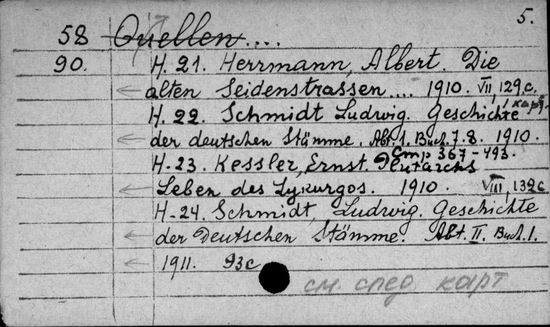 5.
58 Quellen....
90. H. 21. Herrmann, Albert. Die
alten Seidenstrassen.... 1910. VII, 129 c.
карт.
H. 22. Schmidt Ludwig. Geschichte
der deutschen Stämme. Abt. 1. Buch. 7.8. 1910.
Стр 367-493.
H-23. Kessler, Ernst. Plutarchs
Leben des Lykurgos. 1910. VIII, 132 c
H-24. Schmidt, Ludwig. Geschichte
der Deutschen Stämme. Abt. II. Buch. 1.
1911. 93c
см. след карт